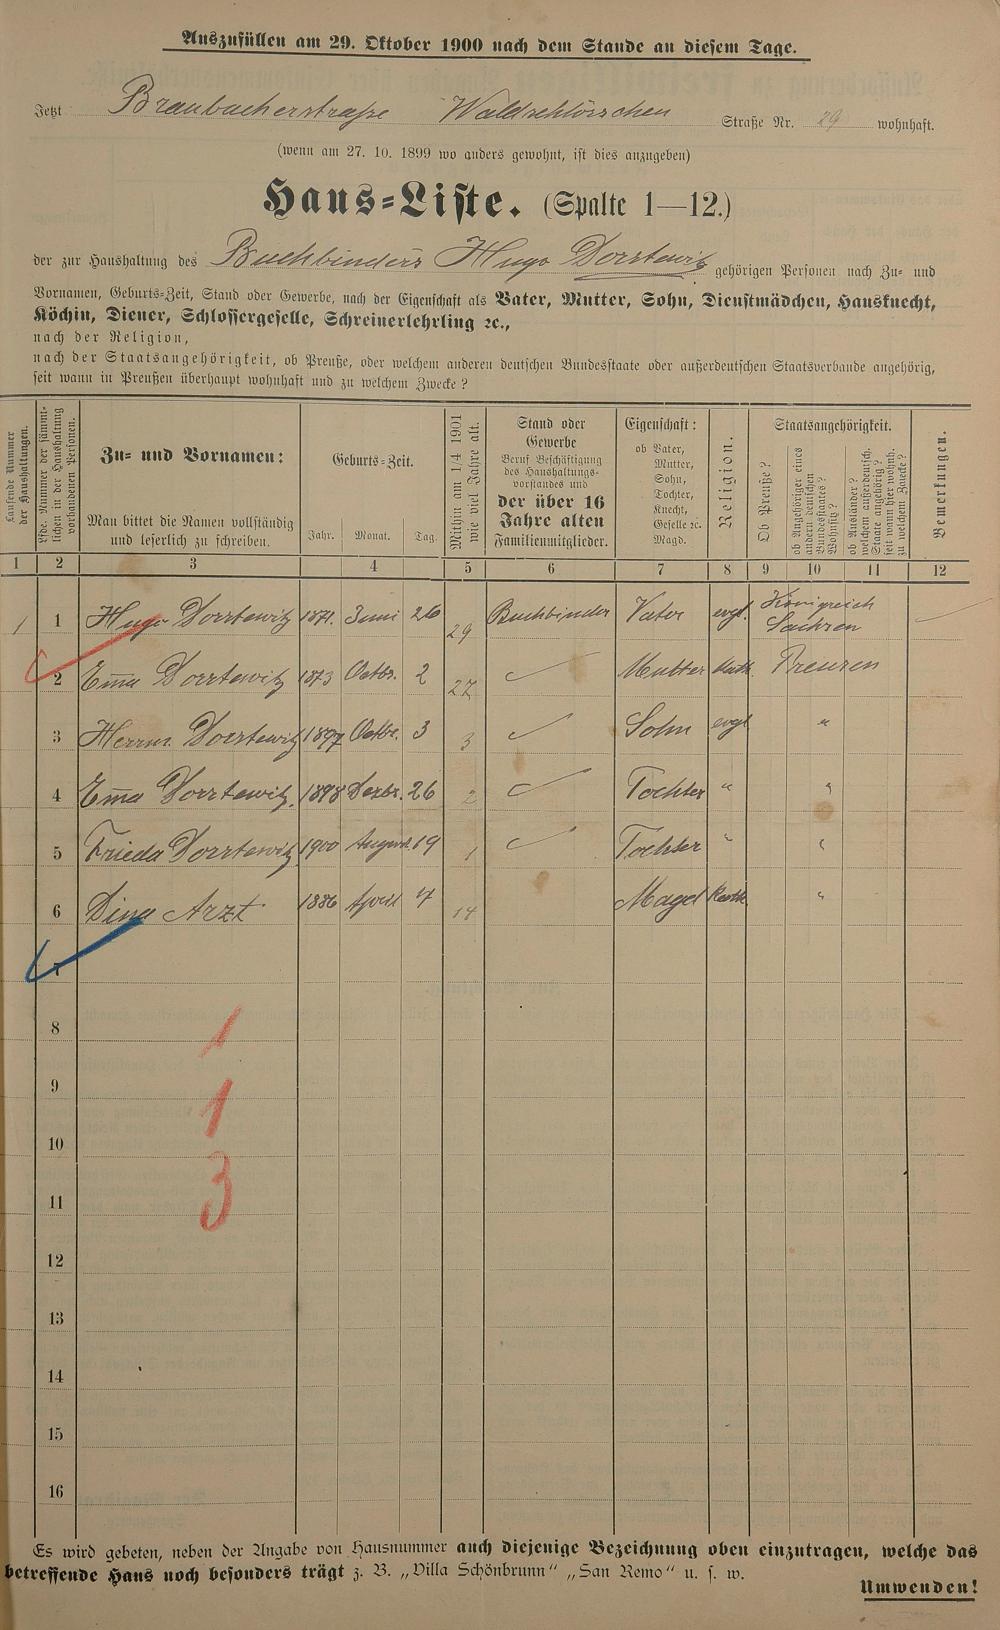 Auszufüllen am 29. Oktober 1900 nach dem Stande an diesem Tage.
Jetzt Braubacherstraße Waldschlösschen Straße Nr. 29 wohnhaft.
(wenn am 27. 10. 1899 wo anders gewohnt, ist dies anzugeben)
Haus-Liste. (Spalte 1—12.)
der zur Haushaltung des Buchbinders Hugo Dorstewitz gehörigen Personen nach Zu- und
Vornamen, Geburts-Zeit, Stand oder Gewerbe, nach der Eigenschaft als Vater, Mutter, Sohn, Dienstmädchen, Hausknecht,
Köchin, Diener, Schlossergeselle, Schreinerlehrling ꝛc.,
nach der Religion,
nach der Staatsangehörigkeit, ob Preuße, oder welchem anderen deutschen Bundesstaate oder außerdeutschen Staatsverbande angehörig,
seit wann in Preußen überhaupt wohnhaft und zu welchem Zwecke?
Laufende Nummer der Haushaltungen.
Lfde. Nummer der sämmtlichen in der Haushaltung vorhandenen Personen.
Zu- und Vornamen:
Man bittet die Namen vollständig
und leserlich zu schreiben.
Geburts-Zeit.
Jahr. Monat. Tag.
Mithin am 1/4 1901 wie viel Jahre alt.
Stand oder
Gewerbe
Beruf Beschäftigung
des Haushaltungs-
vorstandes und
der über 16
Jahre alten
Familienmitglieder.
Eigenschaft:
ob Vater,
Mutter,
Sohn,
Tochter,
Knecht,
Geselle ꝛc.
Magd.
Religion.
Staatsangehörigkeit.
Ob Preuße?
ob Angehöriger eines andern deutschen Bundesstaates? Wohnsitz?
ob Ausländer? welchem außerdeutsch. Staate angehörig? seit wann hier wohnh. zu welchem Zwecke?
Bemerkungen.
1 2 3 4 5 6 7 8 9 10 11 12
1 1 Hugo Dorstewitz 1871. Juni 26 29 Buchbinder Vater evgl. Königreich Sachsen
2 Em̄a Dorstewitz 1873 Octbr. 2 27 Mutter kath. Preusen
3 Herm. Dorstewitz 1897 Octbr. 3 3 Sohn evgl "
4 Em̄a Dorstewitz. 1898 Dezbr. 26 2 Tochter " "
5 Frieda Dorstewitz 1900 August. 19 1 Tochter " "
6 Dina Arzt 1886 April 7 14 Magd Kath. "
7
8 1
9
10 1
11 3
12
13
14
15
16
Es wird gebeten, neben der Angabe von Hausnummer auch diejenige Bezeichnung oben einzutragen, welche das
betreffende Haus noch besonders trägt z. B. „Villa Schönbrunn" „San Remo" u. s. w.
Umwenden!